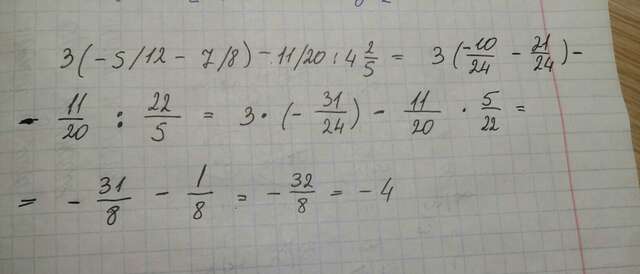 3(-5/12 - 7/8) - 11/20 : 4 2/5 = 3(-10/24 - 21/24) -
- 11/20 : 22/5 = 3·(-31/24) - 11/20 · 5/22 =
= -31/8 - 1/8 = -32/8 = -4